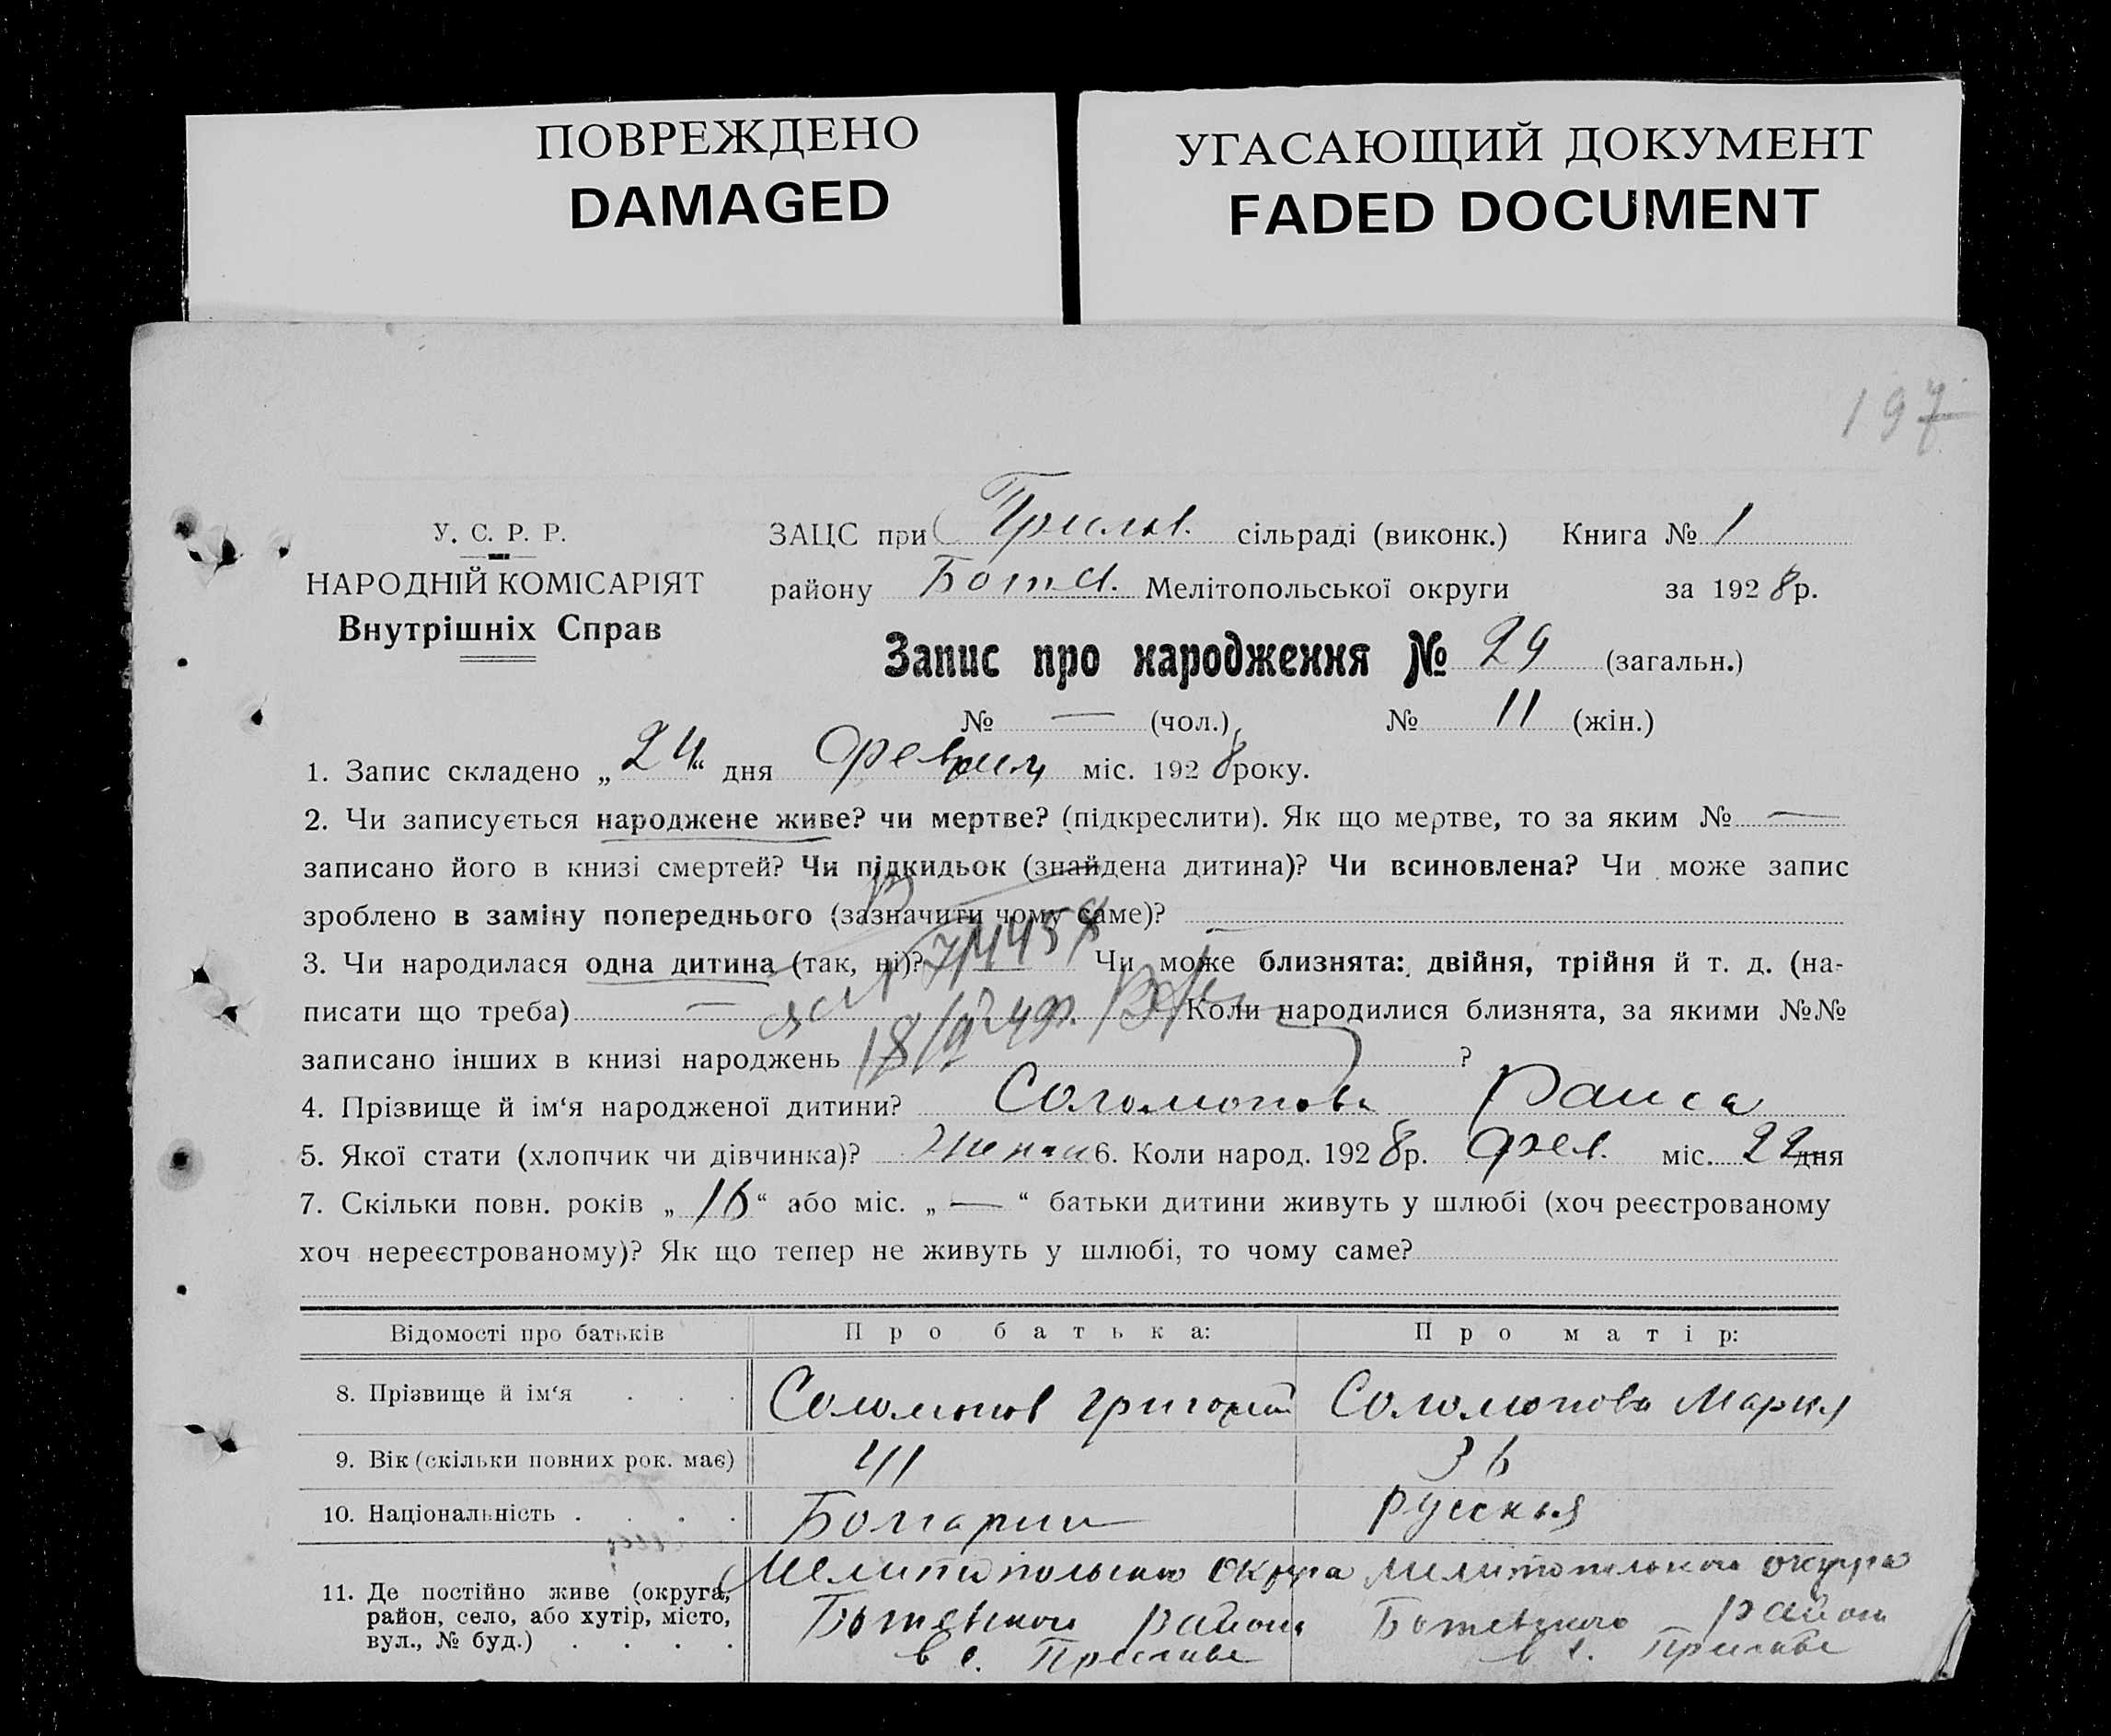 ПОВРЕЖДЕНО
DAMAGED
УГАСАЮЩИЙ ДОКУМЕНТ
FADED DOCUMENT
197
У. С. Р. Р.
НАРОДНІЙ КОМІСАРІЯТ
Внутрішніх Справ
ЗАЦС при сільраді (виконк.) Книга № 1
району Ботєв. Мелітопольської округи за 1928 р.
Запис про народження № 29 (загальн.)
№ — (чол.) № 11 (жін.)
1. Запис складено „24“ дня февраля міс. 1928 року.
2. Чи записується народжене живе? чи мертве? (підкреслити). Як що мертве, то за яким № —
записано його в книзі смертей? Чи підкидьок (знайдена дитина)? Чи всиновлена? Чи може запис
зроблено в заміну попереднього (зазначити чому саме)? —
3. Чи народилася одна дитина (так, ні)? — Чи може близнята: двійня, трійня й т. д. (на-
писати що треба) — Коли народилися близнята, за якими №№
записано інших в книзі народжень ?
4. Прізвище й ім‘я народженої дитини? Соломонова Раиса
5. Якої стати (хлопчик чи дівчинка)? 6. Коли народ. 1928 р. фев. міс. 22 дня
7. Скільки повн. років „16“ або міс. „—“ батьки дитини живуть у шлюбі (хоч реєстрованому
хоч нереєстрованому)? Як що тепер не живуть у шлюбі, то чому саме?
Відомості про батьків Про батька: Про матір:
8. Прізвище й ім‘я . . . Соломонов Григорий Соломонова Мария
9. Вік (скільки повних рок. має) 41 36
10. Національність . . . . Болгарин русская
11. Де постійно живе (округа, район, село, або хутір, місто, вул., № буд.) . . . .
Мелитопольского округа Мелитопольского округа
Ботевского района Ботевского района
в с. Преславе в с. Преславе